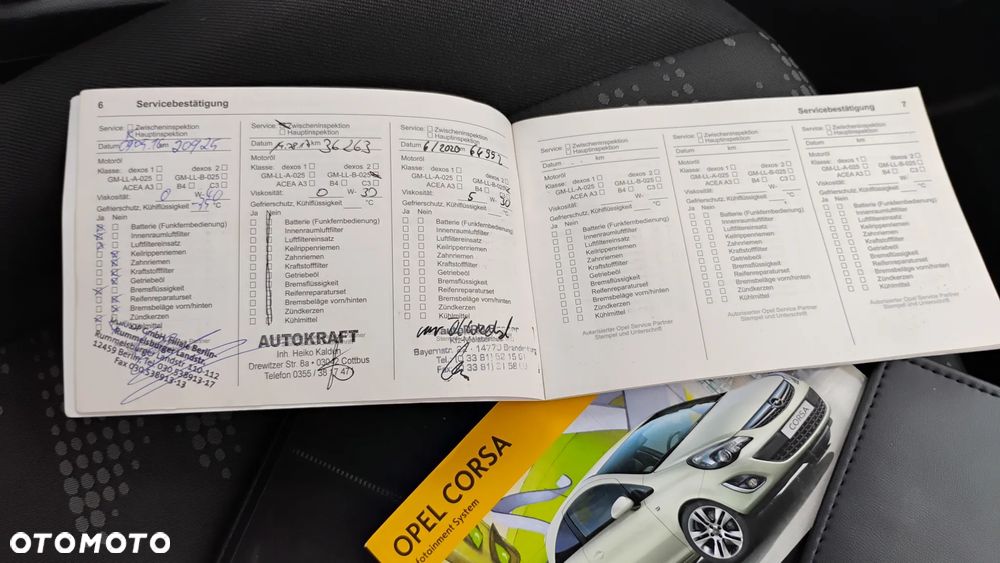 6 Servicebestätigung
Service: Zwischeninspektion
Hauptinspektion
Datum km 20925
Motoröl
Klasse: dexos 1 dexos 2
GM-LL-A-025 GM-LL-B-025
ACEA A3 B4 C3
Viskosität: 0 W- 40
Gefrierschutz, Kühlflüssigkeit °C
Ja Nein
Batterie (Funkfernbedienung)
Innenraumluftfilter
Luftfiltereinsatz
Keilrippenriemen
Zahnriemen
Kraftstofffilter
Getriebeöl
Bremsflüssigkeit
Reifenreparaturset
Bremsbeläge vorn/hinten
Zündkerzen
Kühlmittel
GmbH Filiale Berlin-
Rummelsburger Landstr.
Rummelsburger Landstr. 110-112
12459 Berlin Tel 030-538913-17
Fax 030-538913-13
Service: Zwischeninspektion
Hauptinspektion
Datum km 36263
Motoröl
Klasse: dexos 1 dexos 2
GM-LL-A-025 GM-LL-B-025
ACEA A3 B4 C3
Viskosität: 0 W- 30
Gefrierschutz, Kühlflüssigkeit °C
Ja Nein
Batterie (Funkfernbedienung)
Innenraumluftfilter
Luftfiltereinsatz
Keilrippenriemen
Zahnriemen
Kraftstofffilter
Getriebeöl
Bremsflüssigkeit
Reifenreparaturset
Bremsbeläge vorn/hinten
Zündkerzen
Kühlmittel
AUTOKRAFT
Inh. Heiko Kalden
Drewitzer Str. 8a • 03042 Cottbus
Telefon 0355 / 38 17 471
Service: Zwischeninspektion
Hauptinspektion
Datum 6/2020 km
Motoröl
Klasse: dexos 1 dexos 2
GM-LL-A-025 GM-LL-B-025
ACEA A3 B4 C3
Viskosität: 5 W- 30
Gefrierschutz, Kühlflüssigkeit °C
Ja Nein
Batterie (Funkfernbedienung)
Innenraumluftfilter
Luftfiltereinsatz
Keilrippenriemen
Zahnriemen
Kraftstofffilter
Getriebeöl
Bremsflüssigkeit
Reifenreparaturset
Bremsbeläge vorn/hinten
Zündkerzen
Kühlmittel
Servicebestätigung 7
Service: Zwischeninspektion
Hauptinspektion
Datum km
Motoröl
Klasse: dexos 1 dexos 2
GM-LL-A-025 GM-LL-B-025
ACEA A3 B4 C3
Viskosität: W-
Gefrierschutz, Kühlflüssigkeit °C
Ja Nein
Batterie (Funkfernbedienung)
Innenraumluftfilter
Luftfiltereinsatz
Keilrippenriemen
Zahnriemen
Kraftstofffilter
Getriebeöl
Bremsflüssigkeit
Reifenreparaturset
Bremsbeläge vorn/hinten
Zündkerzen
Kühlmittel
Autorisierter Opel Service Partner
Stempel und Unterschrift
Service: Zwischeninspektion
Hauptinspektion
Datum km
Motoröl
Klasse: dexos 1 dexos 2
GM-LL-A-025 GM-LL-B-025
ACEA A3 B4 C3
Viskosität: W-
Gefrierschutz, Kühlflüssigkeit °C
Ja Nein
Batterie (Funkfernbedienung)
Innenraumluftfilter
Luftfiltereinsatz
Keilrippenriemen
Zahnriemen
Kraftstofffilter
Getriebeöl
Bremsflüssigkeit
Reifenreparaturset
Bremsbeläge vorn/hinten
Zündkerzen
Kühlmittel
Autorisierter Opel Service Partner
Stempel und Unterschrift
Service: Zwischeninspektion
Hauptinspektion
Datum km
Motoröl
Klasse: dexos 1 dexos 2
GM-LL-A-025 GM-LL-B-025
ACEA A3 B4 C3
Viskosität: W-
Gefrierschutz, Kühlflüssigkeit °C
Ja Nein
Batterie (Funkfernbedienung)
Innenraumluftfilter
Luftfiltereinsatz
Keilrippenriemen
Zahnriemen
Kraftstofffilter
Getriebeöl
Bremsflüssigkeit
Reifenreparaturset
Bremsbeläge vorn/hinten
Zündkerzen
Kühlmittel
Autorisierter Opel Service Partner
Stempel und Unterschrift
OPEL CORSA
System
CORSA
OTOMOTO